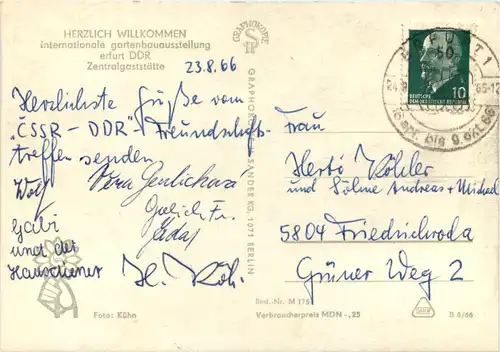 HERZLICH WILLKOMMEN
internationale gartenbauausstellung
erfurt DDR
Zentralgaststätte
23.8.66
Herzlichste Grüße vom
"ČSSR-DDR"-Freundschafts-
treffen senden
Wolf
Gabi
und der
H. Köh.
Foto: Kühn
GRAPHOKOPIE
GRAPHOKOPIE SANDER KG, 1071 BERLIN
ERFURT 1
50
10
DEUTSCHE
DEMOKRATISCHE REPUBLIK
bis 9. okt. 66
Frau
Köhler
und Söhne Andreas + Michael
5804 Friedrichroda
Grüner Weg 2
Best.-Nr. M 175
Verbraucherpreis MDN -,25
B 8/66